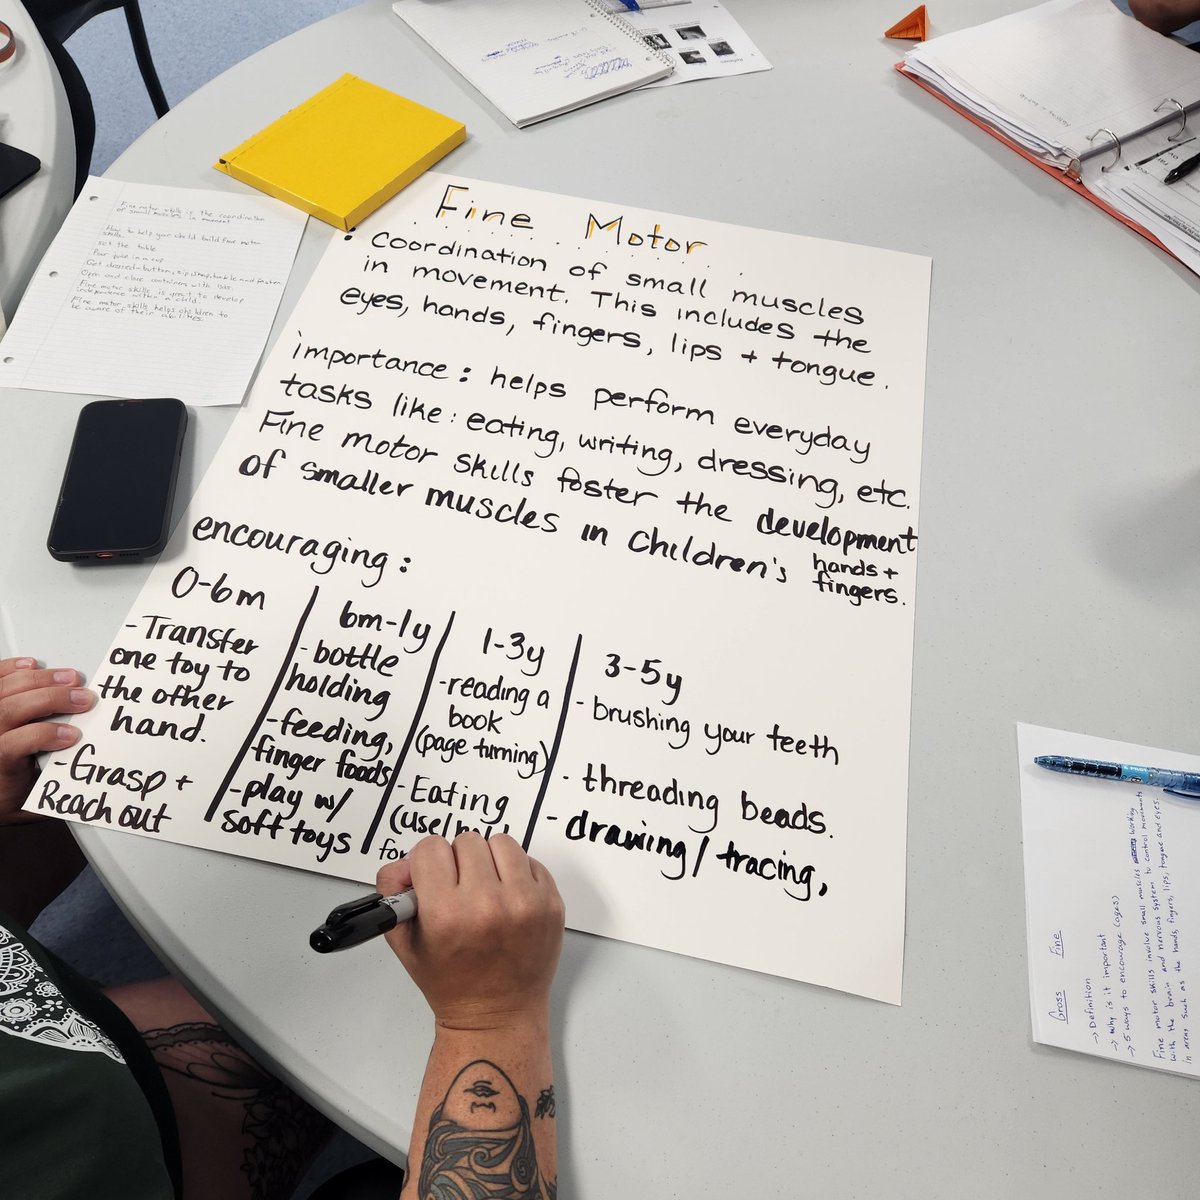 Fine Motor
• Coordination of small muscles
in movement. This includes the
eyes, hands, fingers, lips + tongue.
importance: helps perform everyday
tasks like: eating, writing, dressing, etc.
Fine motor skills foster the development
of smaller muscles in children's hands +
fingers.
encouraging:
0-6m
- Transfer
one toy to
the other
hand.
- Grasp +
Reach out
6m-1y
- bottle
holding
- feeding,
finger foods
- play w/
soft toys
1-3y
- reading a
book
(page turning)
- Eating
(use/
3-5y
- brushing your teeth
- threading beads.
- drawing/tracing,
Fine motor skills is the coordination
of small muscles in movement
How to help your child build fine motor
skills.
Set the table
Pour juice in a cup
Get dressed-button, zip, snap, buckle and fasten
Open and close containers with lids.
Fine motor skills is great to develop
independence within a child.
Fine motor skills helps children to
be aware of their abilities.
Gross Fine
→ Definition
→ Why is it important
→ 5 ways to encourage (ages)
Fine motor skills involve small muscles working
with the brain and nervous system to control movements
in areas such as the hands, fingers, lips, tongue and eyes.